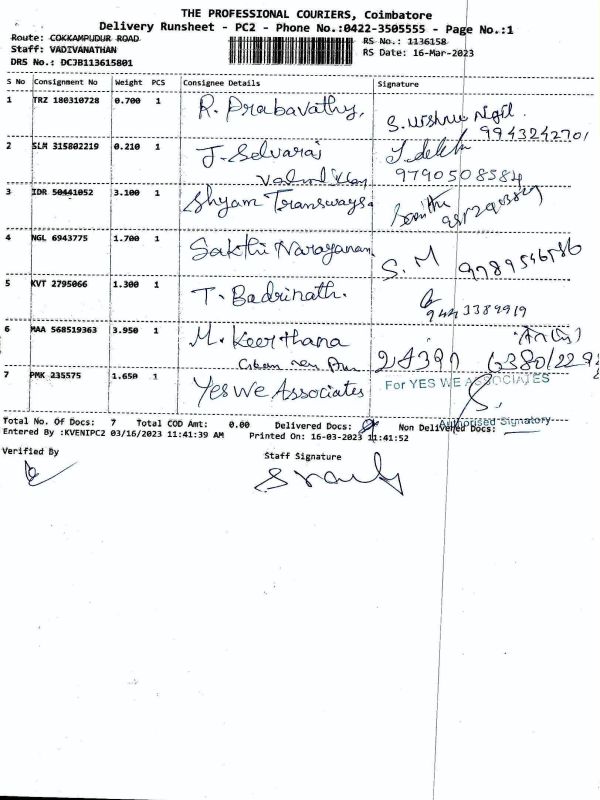 THE PROFESSIONAL COURIERS, Coimbatore
Delivery Runsheet - PC2 - Phone No.:0422-3505555 - Page No.:1
Route: COKKAMPUDUR ROAD
RS No.: 1136158
Staff: VADIVANATHAN
RS Date: 16-Mar-2023
DRS No.: DCJB113615801
S No Consignment No Weight PCS Consignee Details Signature
1 TRZ 180310728 0.700 1 R. Prabavathy,
9943242701
2 SLM 315802219 0.210 1 J. Selvaraj
9790508584
3 IDR 50441052 3.100 1 Shyam Transways.
4 NGL 6943775 1.700 1 Sakthi Narayanan. S. M 9789546786
5 KVT 2795066 1.300 1 T. Badrinath.
9443389919
6 MAA 568519363 3.950 1 M. Keerthana
7 PMK 235575 1.650 1 Yes We Associates For YES WE ASSOCIATES
Authorised Signatory
Total No. Of Docs: 7 Total COD Amt: 0.00 Delivered Docs: Non Delivered Docs:
Entered By :KVENIPC2 03/16/2023 11:41:39 AM Printed On: 16-03-2023 11:41:52
Verified By Staff Signature